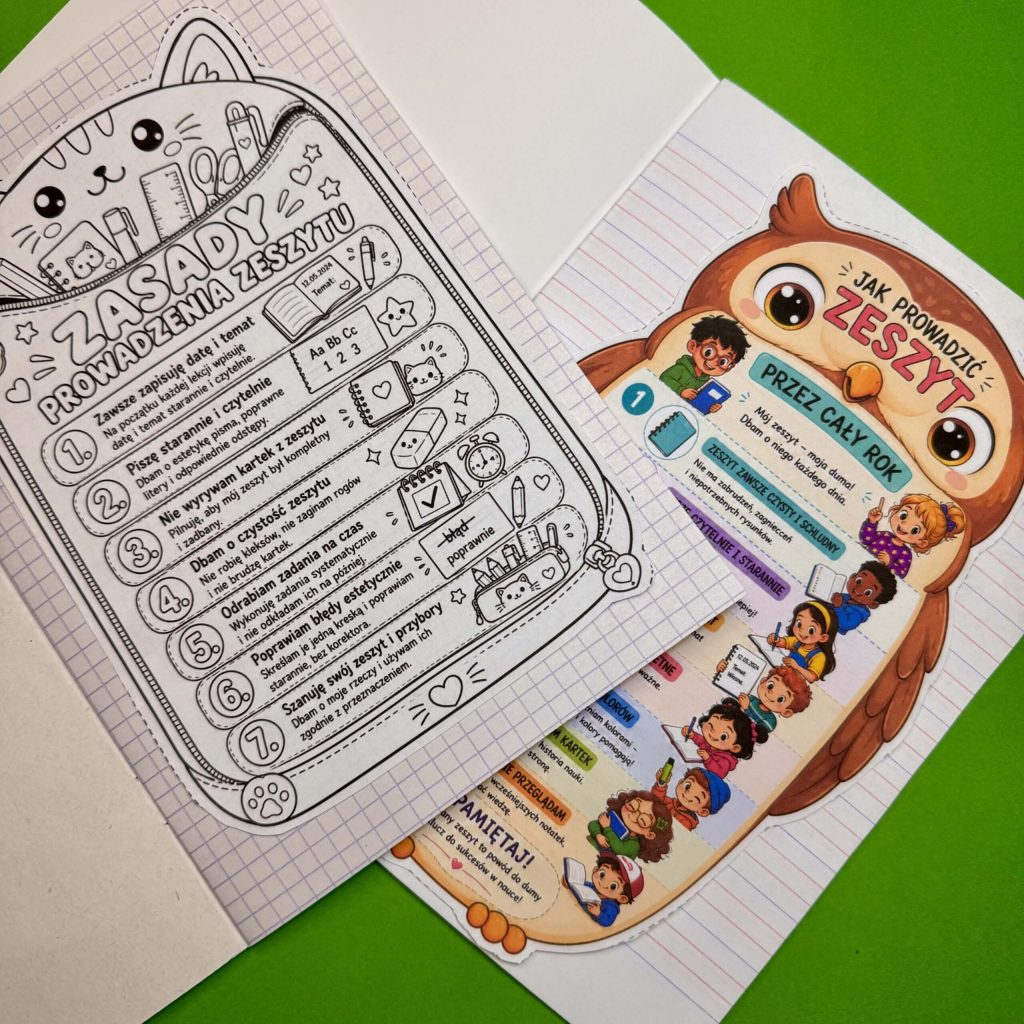 ZASADY
PROWADZENIA ZESZYTU
12.05.2024
Temat:
1.
Zawsze zapisuję datę i temat
Na początku każdej lekcji wpisuję
datę i temat starannie i czytelnie.
2.
Piszę starannie i czytelnie
Dbam o estetykę pisma, poprawne
litery i odpowiednie odstępy.
Aa Bb Cc
1 2 3
3.
Nie wyrywam kartek z zeszytu
Pilnuję, aby mój zeszyt był kompletny
i zadbany.
4.
Dbam o czystość zeszytu
Nie robię kleksów, nie zaginam rogów
i nie brudzę kartek.
5.
Odrabiam zadania na czas
Wykonuję zadania systematycznie
i nie odkładam ich na później.
6.
Poprawiam błędy estetycznie
Skreślam je jedną kreską i poprawiam
starannie, bez korektora.
błąd
poprawnie
7.
Szanuję swój zeszyt i przybory
Dbam o moje rzeczy i używam ich
zgodnie z przeznaczeniem.
JAK PROWADZIĆ
ZESZYT
PRZEZ CAŁY ROK
Mój zeszyt – moja duma!
Dbam o niego każdego dnia.
1
ZESZYT ZAWSZE CZYSTY I SCHLUDNY
Nie ma zabrudzeń, zagnieceń
i niepotrzebnych rysunków.
CZYTELNIE I STARANNIE
12.05.2024
Temat:
KARTEK
historia nauki.
stronę.
PRZEGLĄDAM
notatek,
wiedzę.
PAMIĘTAJ!
zeszyt to powód do dumy
do sukcesów w nauce!